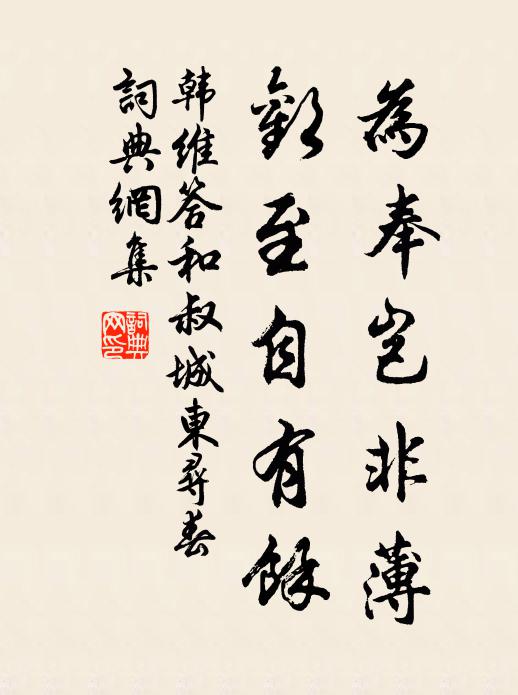 為奉豈非薄
歡至自有餘
韓維答和叔城東尋春
詞典網集
詞典
网印